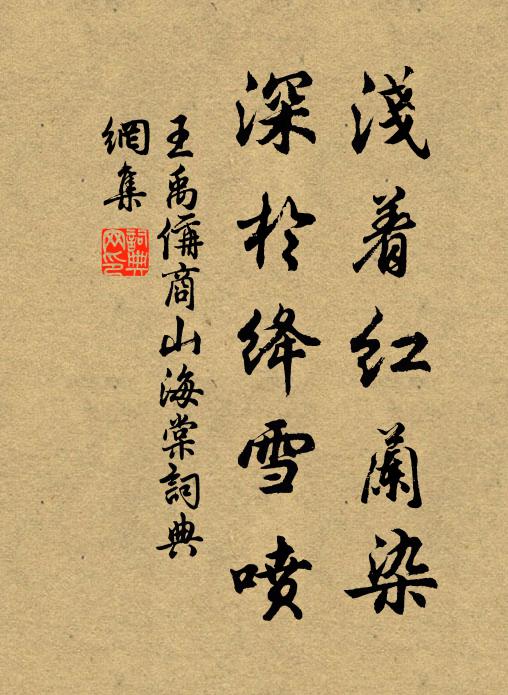 淺着红蘭染
深於绛雪噴
王禹偁商山海棠詞典
網集
詞典
网印